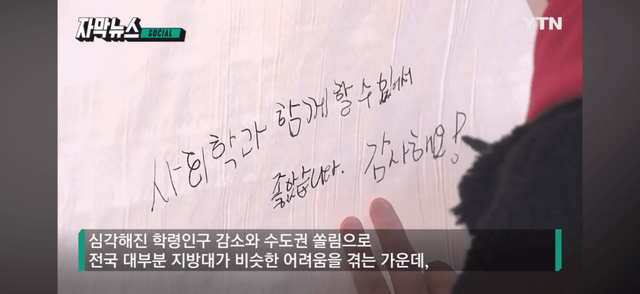 자막뉴스
SOCIAL
YTN
사회학과 함께 할 수 있어서
좋았습니다. 감사해요!
심각해진 학령인구 감소와 수도권 쏠림으로
전국 대부분 지방대가 비슷한 어려움을 겪는 가운데,